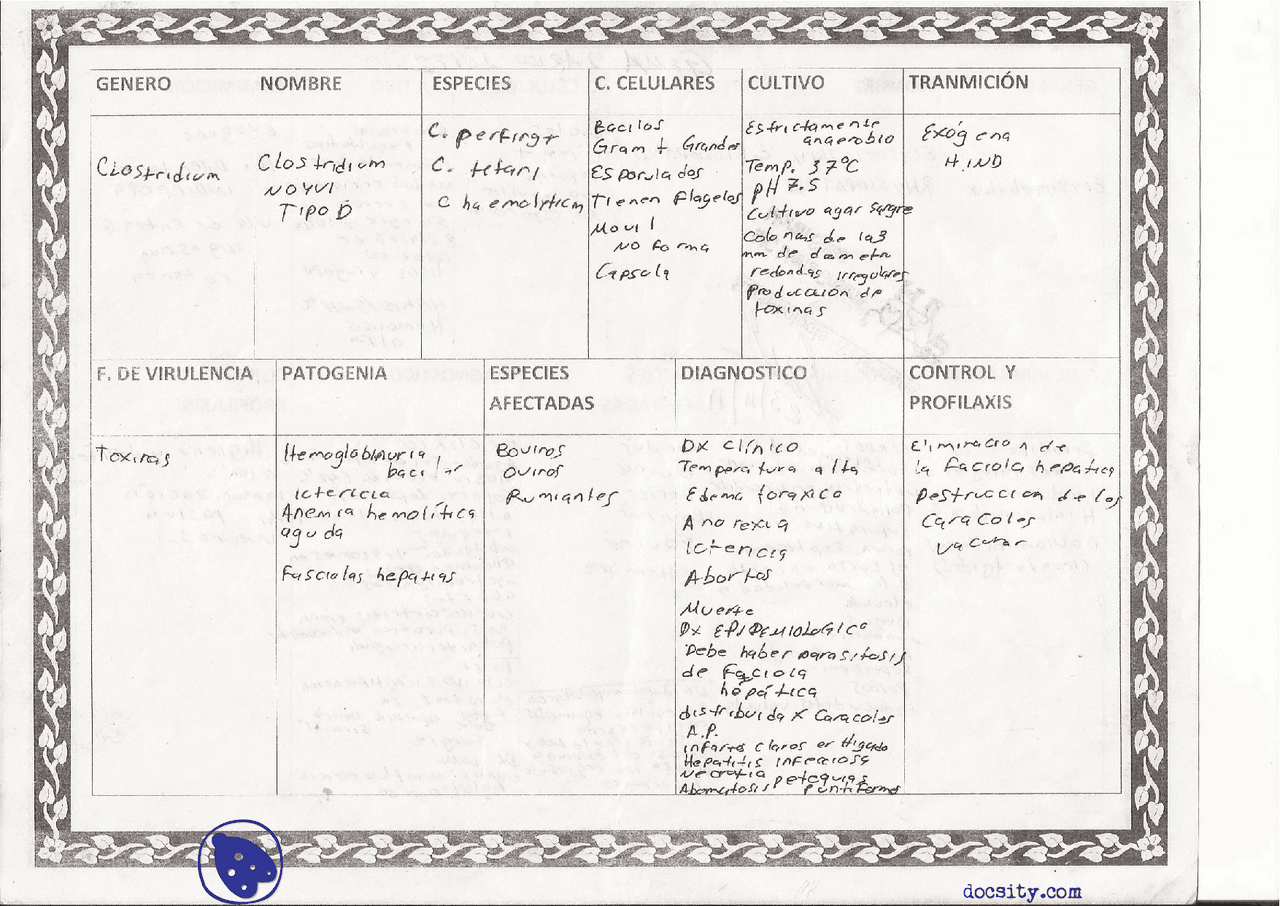 GENERO NOMBRE ESPECIES C. CELULARES CULTIVO TRANMICIÓN
Clostridium
Clostridium
NOYVI
TIPO D
C. perfing+
C. tetani
C haemolyticm
Bacilos
Gram + Grandes
Esporulados
Tienen Flagelos
Movil
No forma
Capsula
Estrictamente
anaerobio
Temp. 37°C
pH 7.5
Cultivo agar sangre
Colonias de 1a3
mm de diametro
redondas irregulares
Producción de
toxinas
Exógena
H.IND
F. DE VIRULENCIA PATOGENIA ESPECIES AFECTADAS DIAGNOSTICO CONTROL Y PROFILAXIS
Toxinas
Hemoglobinuria
bacilar
Ictericia
Anemia hemolítica
aguda
Fasciolas hepatias
Bovinos
Ovinos
Rumiantes
DX Clínico
Temperatura alta
Edema toraxico
Anorexia
Ictericia
Abortos
Muerte
Dx EPIDEMIOLOGICO
Debe haber parasitosis
de Faciola
hépática
distribuida x Caracoles
A.P.
infartos claros en Higado
Hepatitis infecciosa
Necrotia
petequias
Abomatosis puntiformes
Eliminacion de
la Faciola hepatica
Destruccion de los
Caracoles
Vacunar
docsity.com